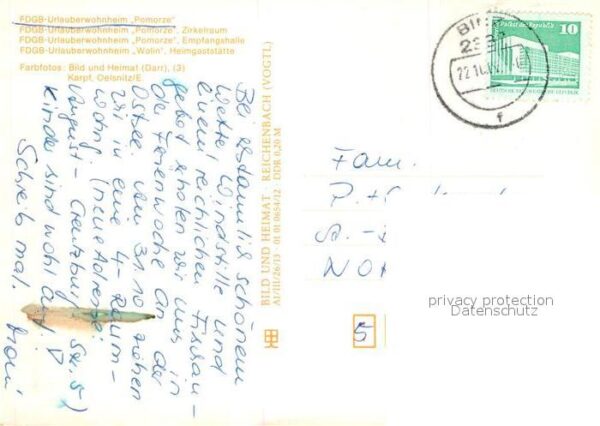 FDGB-Urlauberwohnheim „Pomorze"
FDGB-Urlauberwohnheim „Pomorze", Zirkelraum
FDGB-Urlauberwohnheim „Pomorze", Empfangshalle
FDGB-Urlauberwohnheim „Wolin", Heimgaststätte
Farbfotos: Bild und Heimat (Darr), (3)
Karpf, Oelsnitz/E.
Bei erstaunlich schönem
Wetter, Windstille und
einem reichlichen
gebot erholen wir uns in
der Ferienwoche an der
Ostsee. Am 31.10. ziehen
wir in eine 4-Raum-
Wohng. (neue Adresse:
August-Creutzburg Str. 5)
Kinder sind wohlauf!
Schreib mal.
BILD UND HEIMAT · REICHENBACH (VOGTL)
A1/III/26/13 · 01 01 0654/12 DDR 0,20 M
Palast der Republik
10
DEUTSCHE DEMOKRATISCHE REPUBLIK
22.10.
f
Fam.
5
privacy protection
Datenschutz